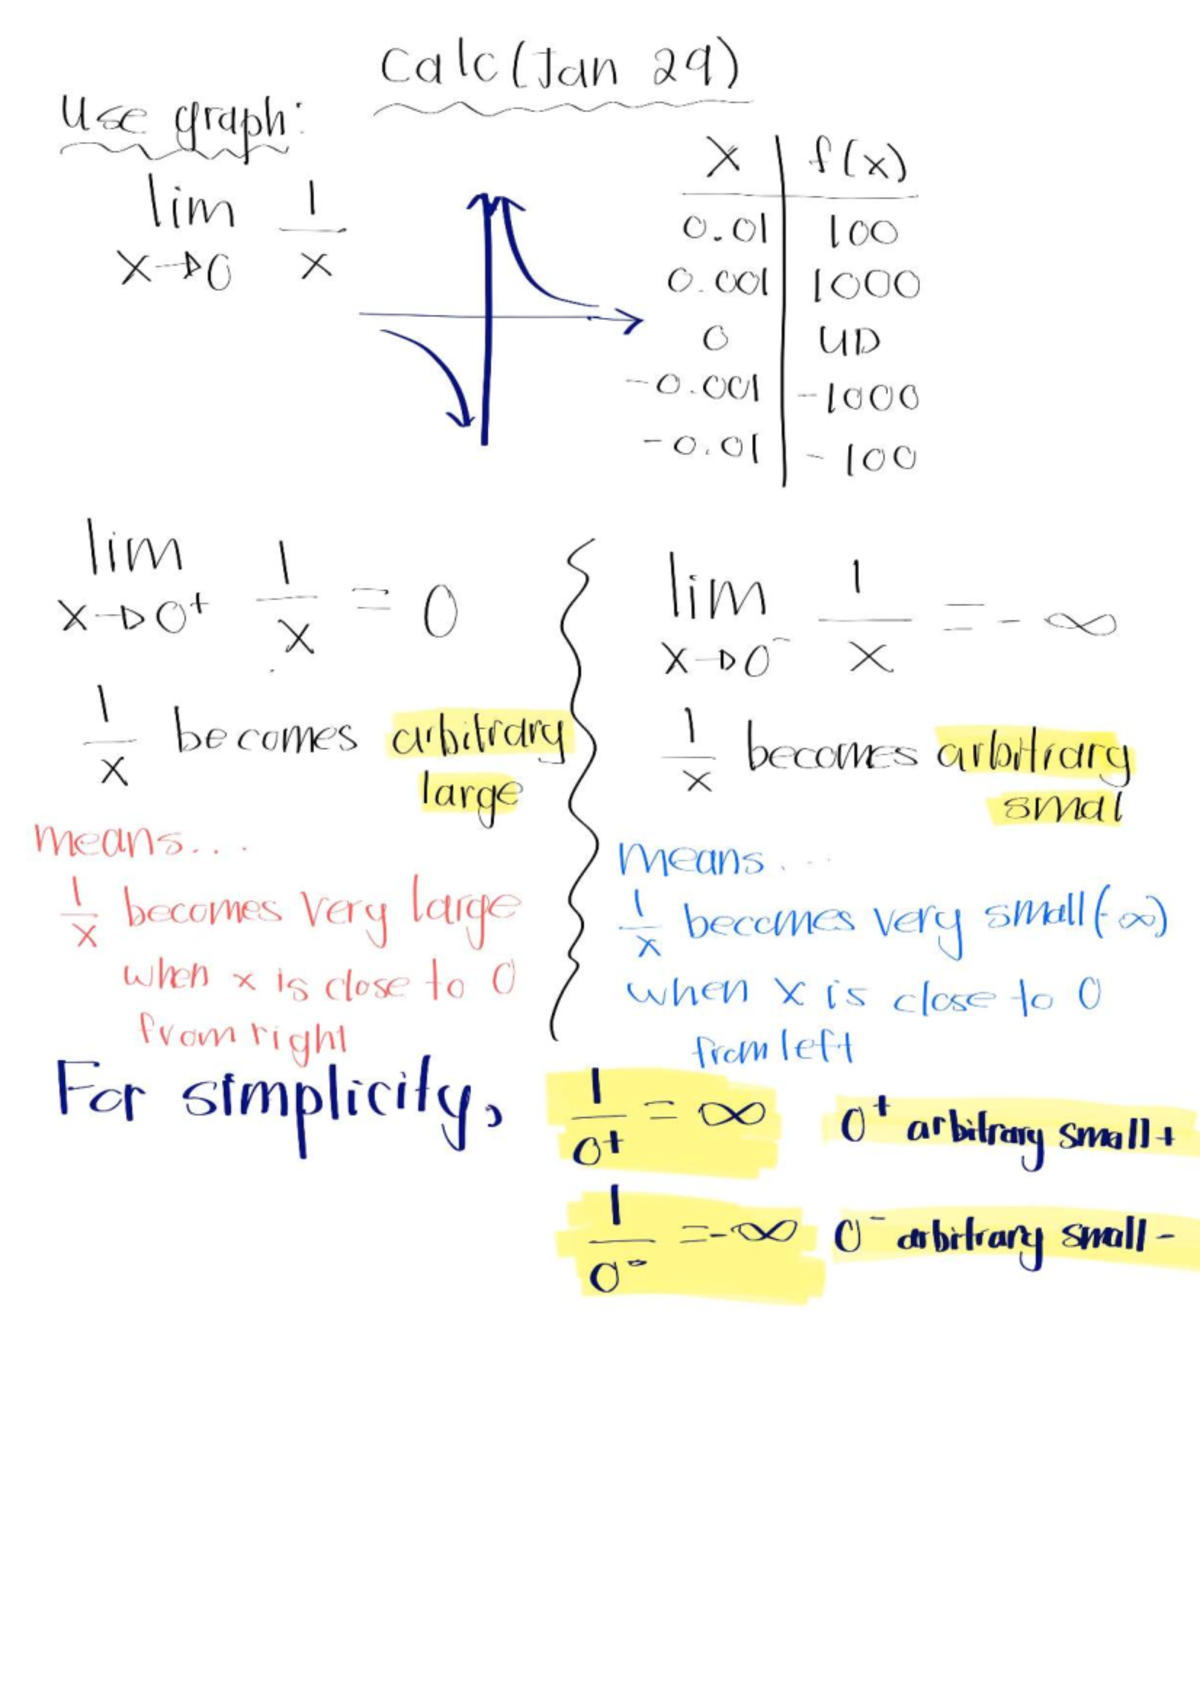 Calc (Jan 29)
Use graph:
lim x→0 1/x
x | f(x)
0.01 | 100
0.001 | 1000
0 | UD
-0.001 | -1000
-0.01 | -100
lim x→0⁺ 1/x = 0
1/x becomes arbitrary
large
means...
1/x becomes very large
when x is close to 0
from right
lim x→0⁻ 1/x = -∞
1/x becomes arbitrary
smal
means...
1/x becomes very small (-∞)
when x is close to 0
from left
For simplicity, 1/0⁺ = ∞ 0⁺ arbitrary small +
1/0⁻ = -∞ 0⁻ arbitrary small -